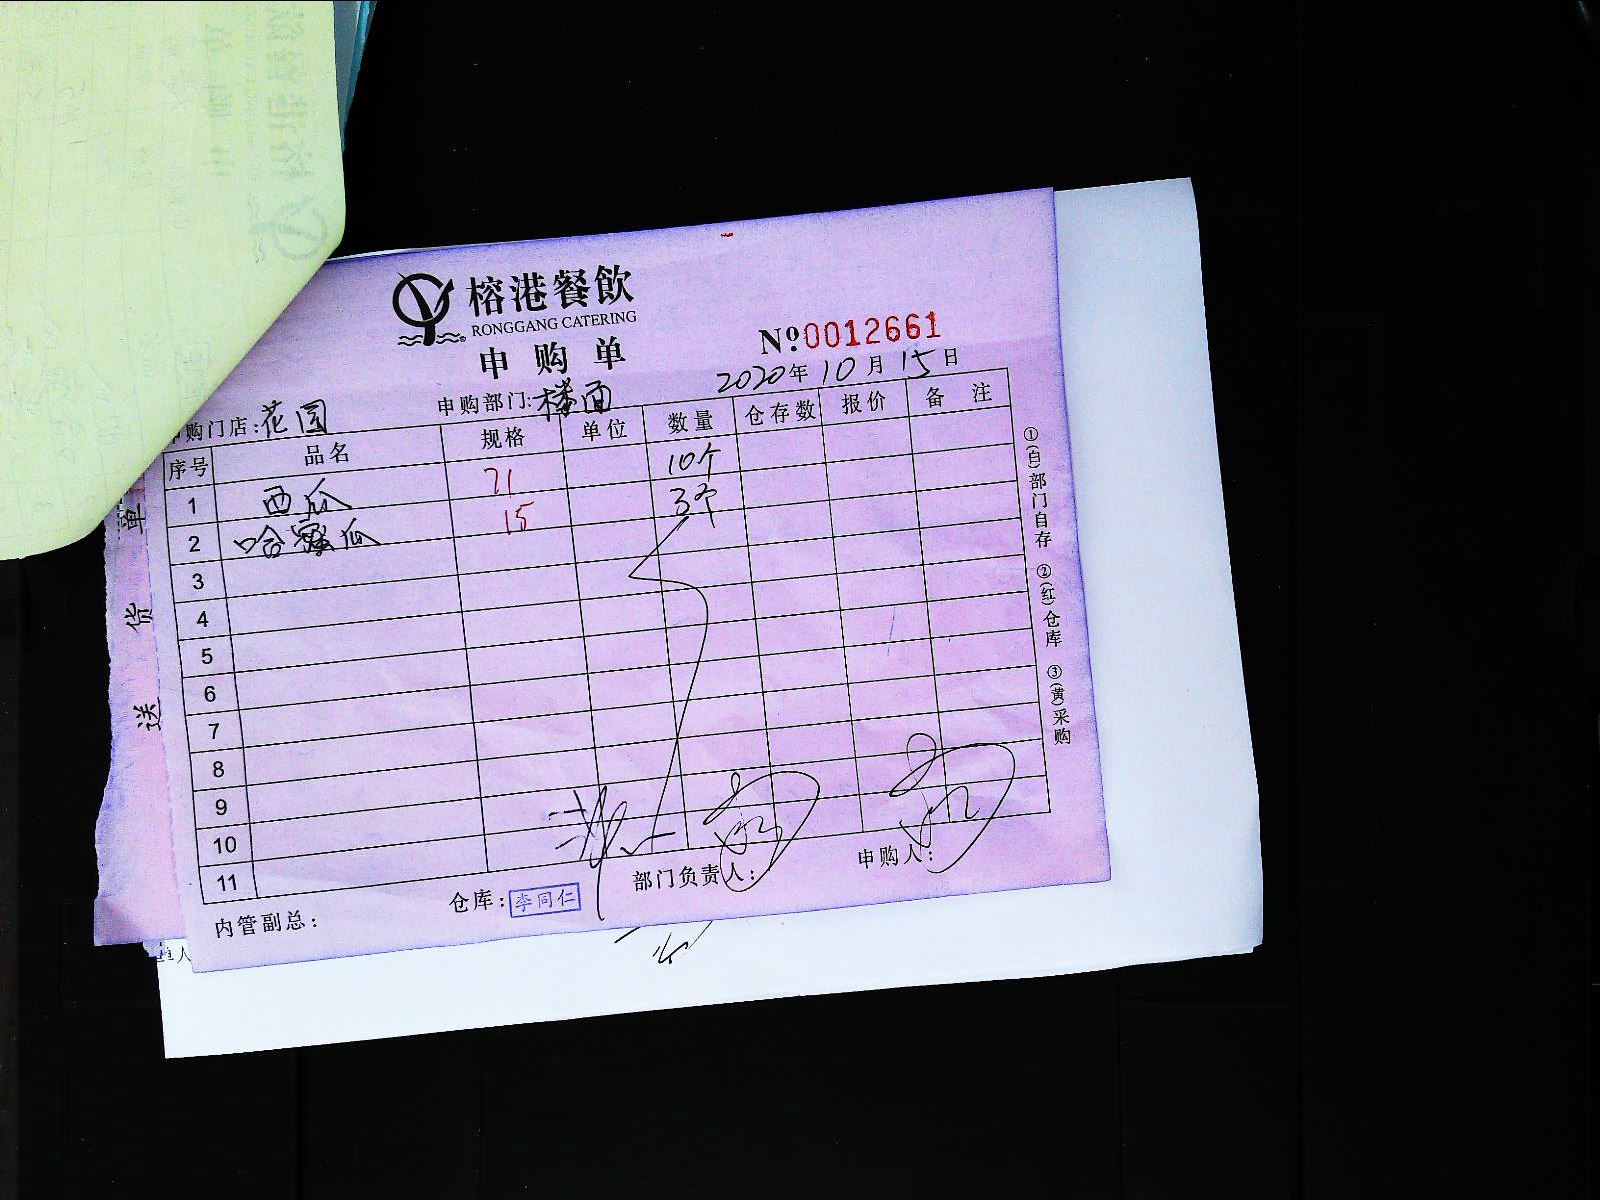 榕港餐飲
RONGGANG CATERING
申购单
№0012661
2020年10月15日
申购门店:花园
申购部门:楼面
序号 品名 规格 单位 数量 仓存数 报价 备注
1 西瓜 71 10个
2 哈蜜瓜 15 3个
3
4
5
6
7
8
9
10
11
内管副总:
仓库:李同仁
部门负责人:
申购人:
①(白)部门自存 ②(红)仓库 ③(黄)采购
送货单